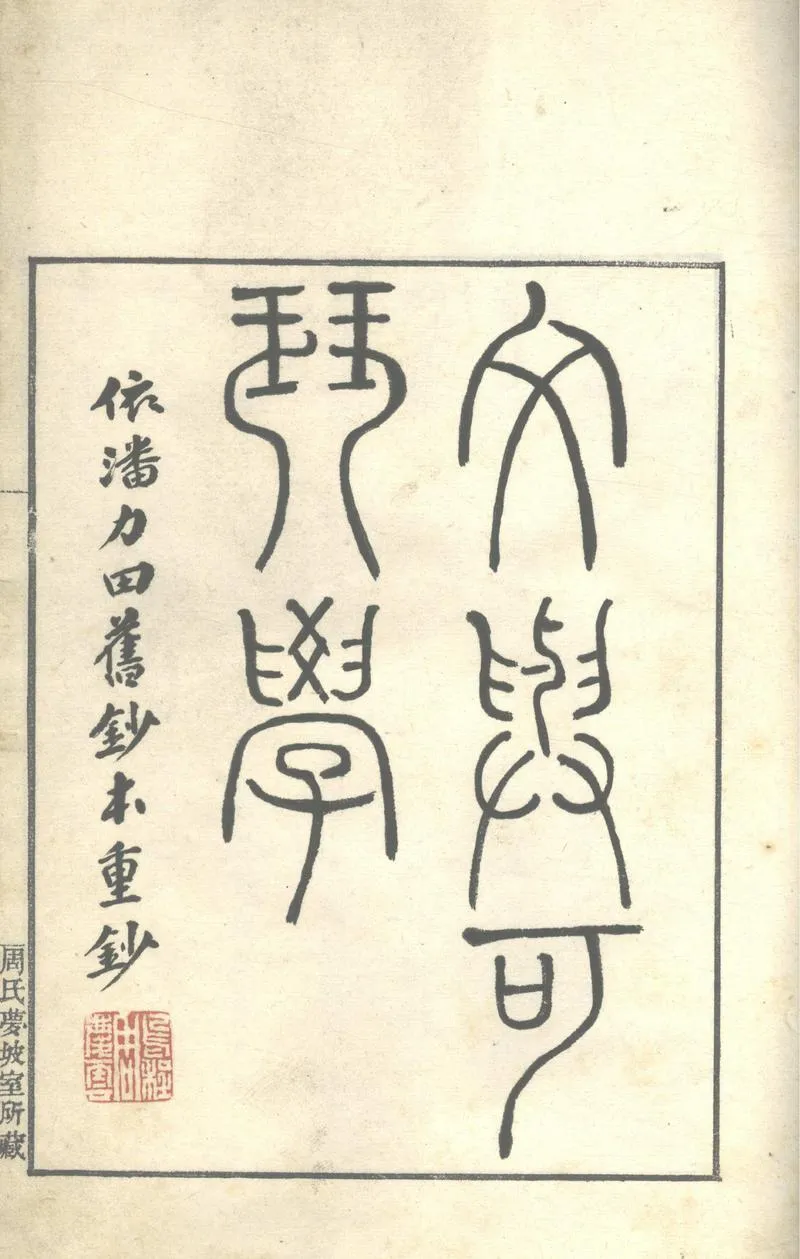 文與可
琴學
依潘力田舊鈔本重鈔
周氏夢坡室所藏